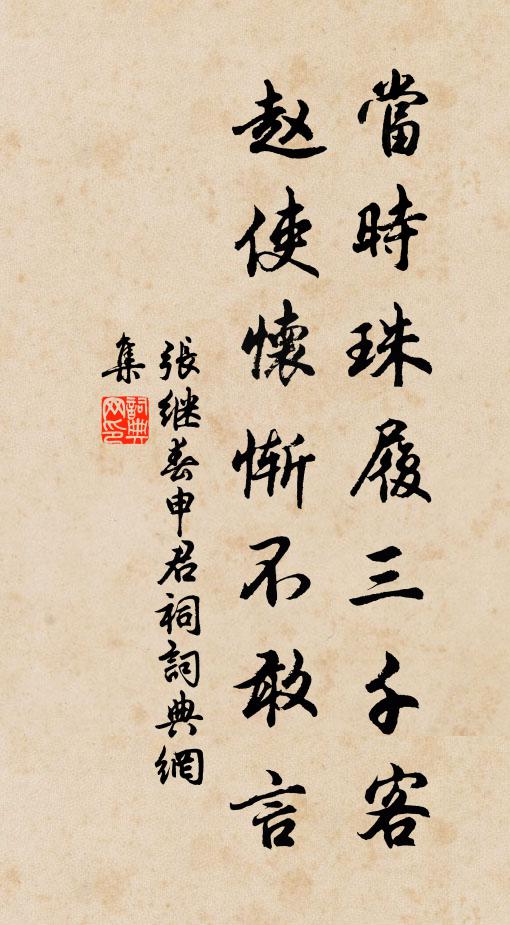 當時珠履三千客
赵使懷慚不敢言
張継春申君祠詞典網
集
詞典
网印